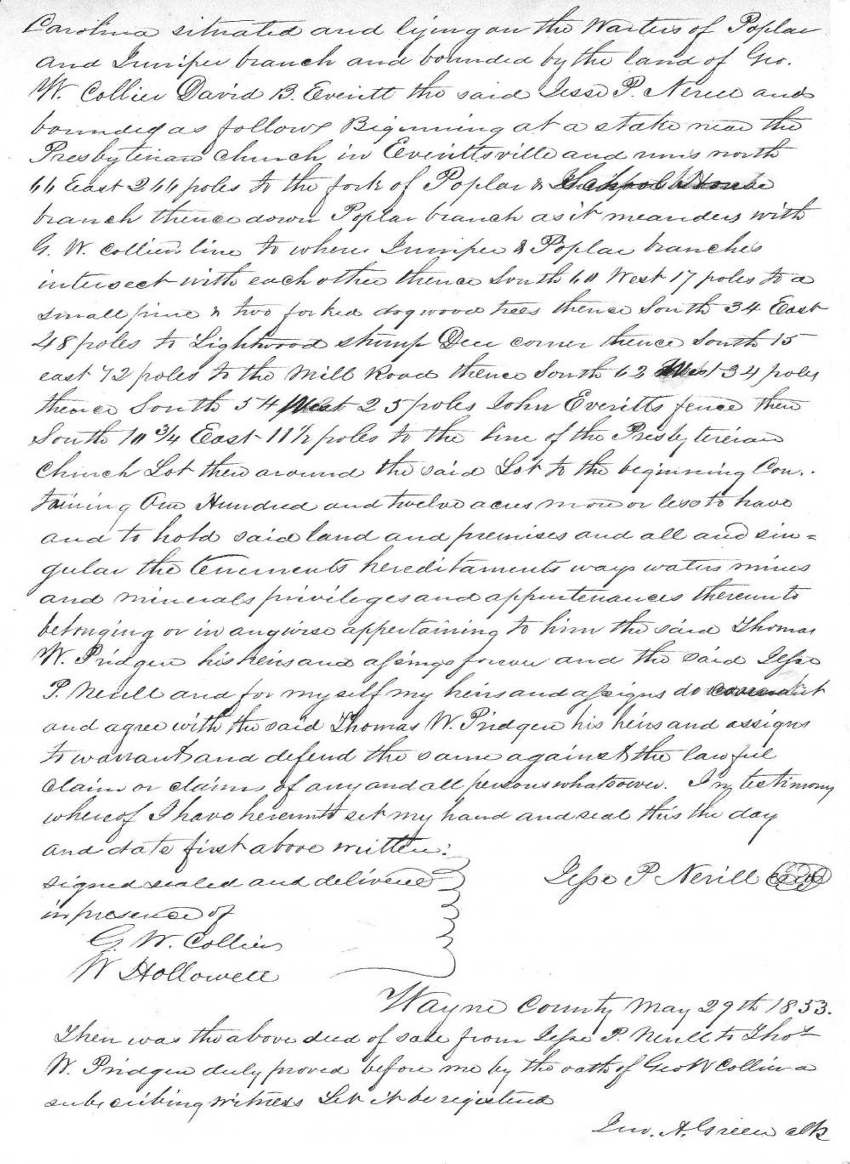 Carolina situated and lying on the Warters of Poplar
and Juniper branch and bounded by the land of Geo.
W. Collier David B. Everitt the said Jesse P. Nerill and
bounded as follows Biginning at a stake near the
Presbyterian church in Everittsville and runs north
66 East 266 poles to the fork of Poplar &
branch thence down Poplar branch as it meanders with
G. W. Colliers line to where Juniper & Poplar branches
intersect with each other thence South 60 West 17 poles to a
small pine & two forked dogwood trees thence South 34 East
48 poles to Lightwood stump Deer corner thence South 15
east 72 poles to the Mill Road thence South 62 West 34 poles
thence South 54 West 25 poles John Everitts fence then
South 10 3/4 East 11 1/2 poles to the line of the Presbyterian
Church Lot then around the said Lot to the beginning Con-
taining One Hundred and twelve acres more or less to have
and to hold said land and premises and all and sin=
gular the Tenements hereditaments ways waters mines
and minerals privileges and appurtenances thereunto
belonging or in anywise appertaining to him the said Thomas
W. Pridgen his heirs and assings forever and the said Jesse
P. Nerill and for myself my heirs and assigns do covenant
and agree with the said Thomas W. Pridgen his heirs and assigns
to warrant and defend the same against the lawful
claim or claims of any and all persons whatsoever. In testimony
whereof I have hereunto set my hand and seal this the day
and date first above written:
signed sealed and delivered
in presence of
Jesse P Nerill Seal
G. W. Collier
W Hollowell
Wayne County May 29th 1853.
Then was the above deed of sale from Jesse P. Nerill to Thos
W. Pridgen duly proved before me by the oath of Geo W Collier a
subscribing witness Let it be registered
Jno. A. Green clk